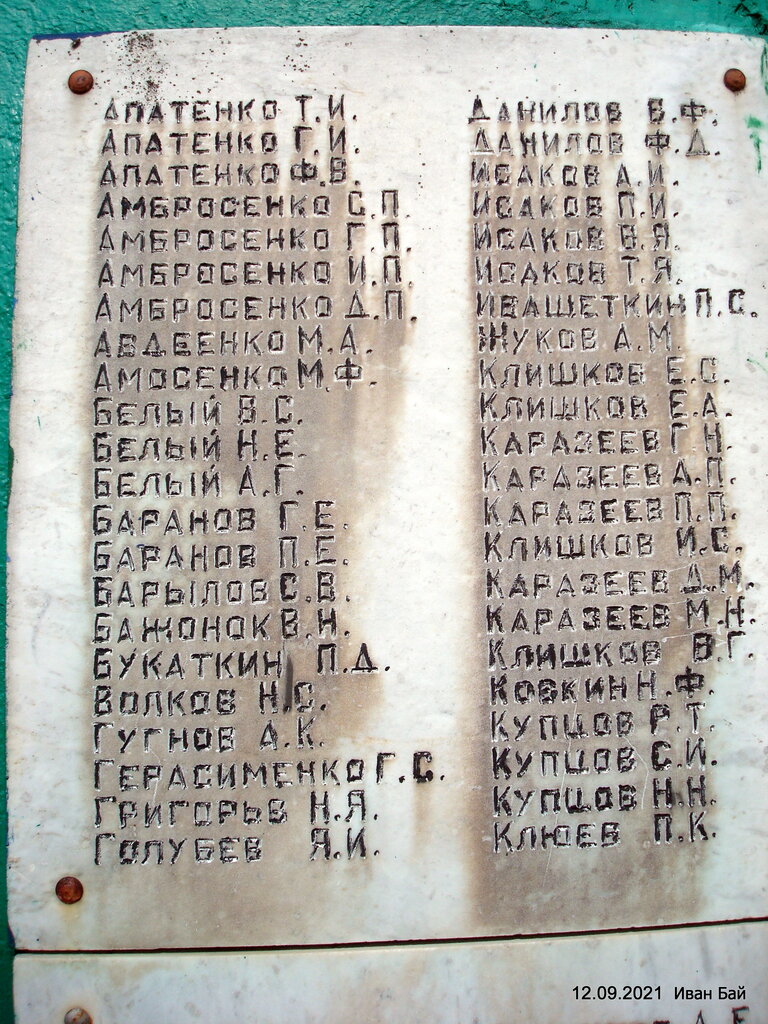 АПАТЕНКО Т.И.
АПАТЕНКО Г.И.
АПАТЕНКО Ф.В.
АМБРОСЕНКО С.П.
АМБРОСЕНКО Г.П.
АМБРОСЕНКО И.П.
АМБРОСЕНКО Д.П.
АВДЕЕНКО М.А.
АМОСЕНКО М.Ф.
БЕЛЫЙ В.С.
БЕЛЫЙ Н.Е.
БЕЛЫЙ А.Г.
БАРАНОВ Г.Е.
БАРАНОВ П.Е.
БАРЫЛОВ С.В.
БАЖОНОК В.Н.
БУКАТКИН П.Д.
ВОЛКОВ Н.С.
ГУГНОВ А.К.
ГЕРАСИМЕНКО Г.С.
ГРИГОРЬВ Н.Я.
ГОЛУБЕВ Я.И.
ДАНИЛОВ В.Ф.
ДАНИЛОВ Ф.Д.
ИСАКОВ А.И.
ИСАКОВ П.И.
ИСАКОВ В.Я.
ИСАКОВ Т.Я.
ИВАЩЕТКИН П.С.
ЖУКОВ А.М.
КЛИШКОВ Е.С.
КЛИШКОВ Е.А.
КАРАЗЕЕВ Г.Н.
КАРАЗЕЕВ А.П.
КАРАЗЕЕВ П.П.
КЛИШКОВ И.С.
КАРАЗЕЕВ Д.М.
КАРАЗЕЕВ М.Н.
КЛИШКОВ В.Г.
КОВКИН Н.Ф.
КУПЦОВ Р.Т.
КУПЦОВ С.И.
КУПЦОВ Н.Н.
КЛЮЕВ П.К.
12.09.2021 Иван Бай